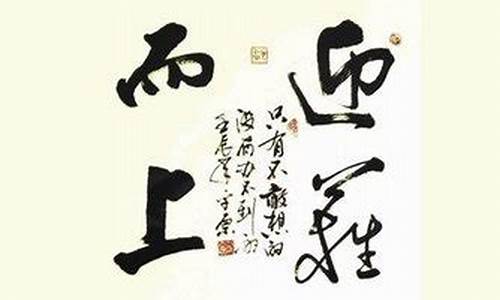 迎難
只有不敢想的
没有办不到的
壬辰
而上